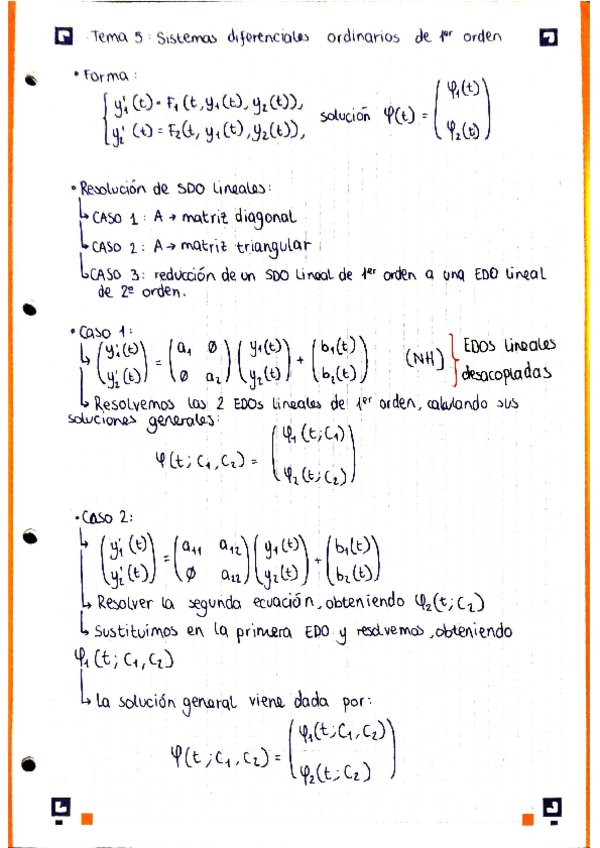 Tema 5: Sistemas diferenciales ordinarios de 1er orden
• Forma:
{ y₁'(t) = F₁(t, y₁(t), y₂(t)),
{ y₂'(t) = F₂(t, y₁(t), y₂(t)),
solución φ(t) = (φ₁(t) / φ₂(t))
• Resolución de SDO Lineales:
↳ CASO 1: A → matriz diagonal
↳ CASO 2: A → matriz triangular
↳ CASO 3: reducción de un SDO Lineal de 1er orden a una EDO lineal
de 2º orden.
• Caso 1:
↳ (y₁'(t) / y₂'(t)) = (a₁ ∅ / ∅ a₂) (y₁(t) / y₂(t)) + (b₁(t) / b₂(t)) (NH) } EDOs lineales
desacopladas
↳ Resolvemos las 2 EDOs lineales de 1er orden, calculando sus
soluciones generales:
φ(t; C₁, C₂) = (φ₁(t; C₁) / φ₂(t; C₂))
• Caso 2:
↳ (y₁'(t) / y₂'(t)) = (a₁₁ a₁₂ / ∅ a₂₂) (y₁(t) / y₂(t)) + (b₁(t) / b₂(t))
↳ Resolver la segunda ecuación, obteniendo φ₂(t; C₂)
↳ Sustituimos en la primera EDO y resolvemos, obteniendo
φ₁(t; C₁, C₂)
↳ La solución general viene dada por:
φ(t; C₁, C₂) = (φ₁(t; C₁, C₂) / φ₂(t; C₂))